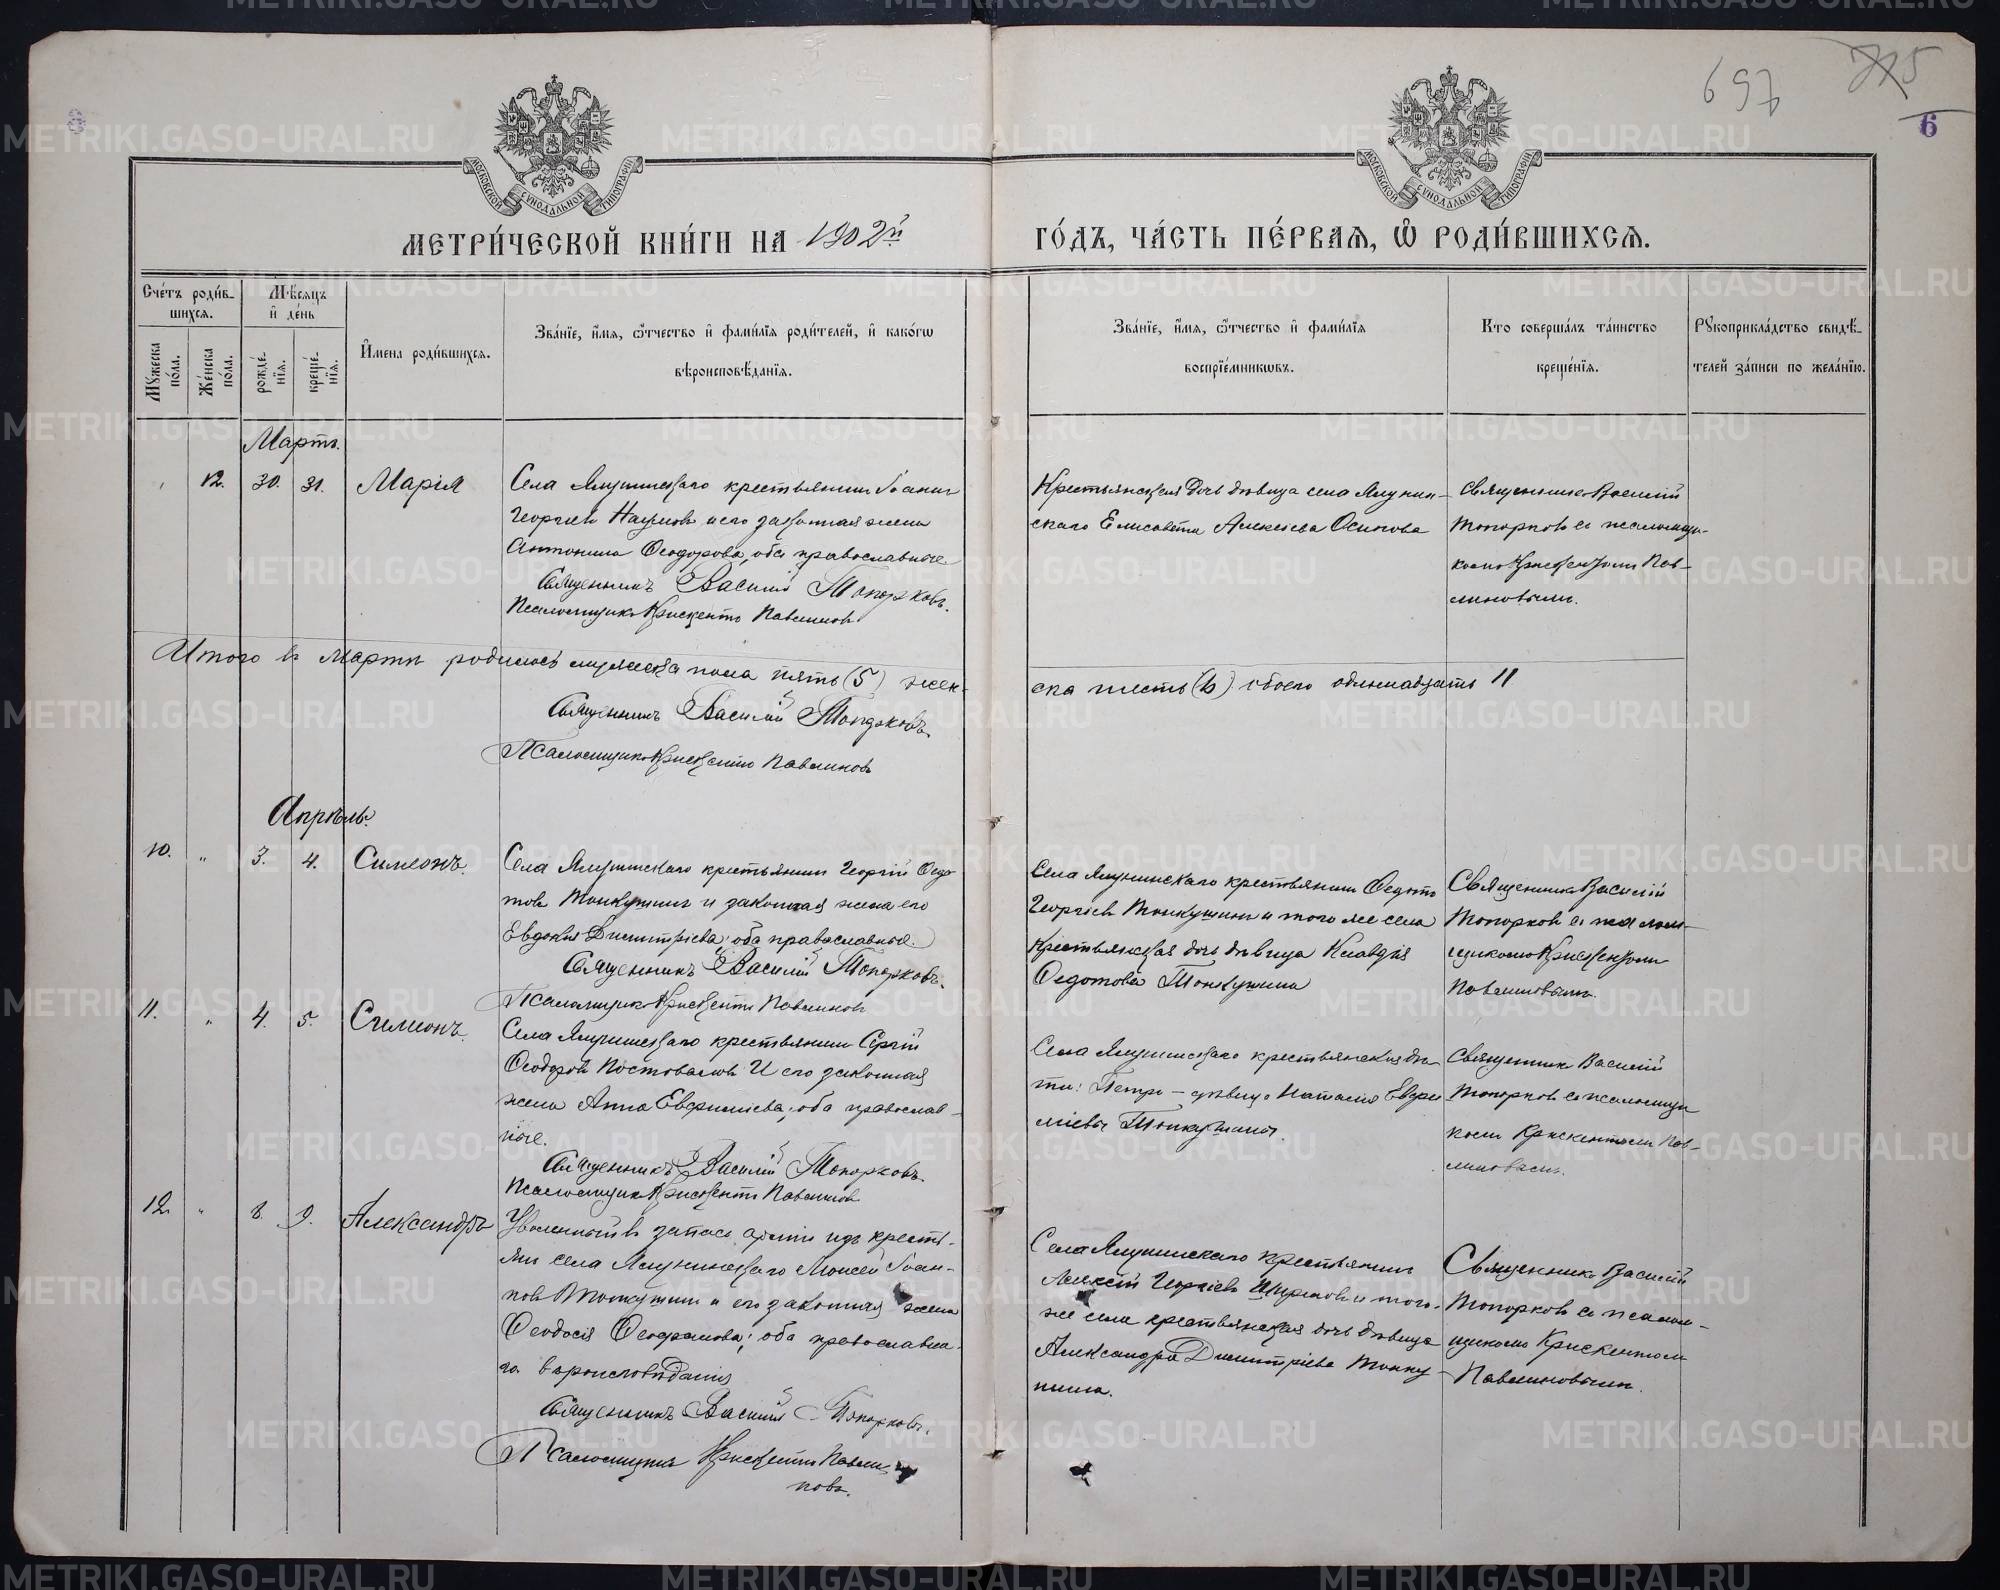 697
725
6
МОСКОВСКОЙ СѴНОДАЛЬНОЙ ТИПОГРАФІИ
МОСКОВСКОЙ СѴНОДАЛЬНОЙ ТИПОГРАФІИ
МЕТРИ́ЧЕСКОЙ КНИ́ГИ НА 1902й
ГО́ДЪ, ЧА́СТЬ ПЕ́РВАЯ, Ѽ РОДИ́ВШИХСЯ.
Сче́тъ роди́в-
шихся.
Мѣ́сяцъ
и҆ де́нь
Мꙋ́жеска по́ла.
Же́нска по́ла.
рожде́-нїя.
креще́-нїя.
И҆мена роди́вшихся.
Зва́нїе, и҆́мя, ѻ҆́тчество и҆ фами́лїя роди́телей, и҆ како́гѡ
вѣроисповѣ́данїя.
Зва́нїе, и҆́мя, ѻ҆́тчество и҆ фами́лїя
воспрїе́мникѡвъ.
Кто̀ соверша́лъ та́инство
креще́нїя.
Рꙋкоприкла́дство свидѣ́-
телей за́писи по жела́нїю.
Мартъ.
12. 30. 31. Марія
Села крестьянинъ Іоаннъ
Георгіевъ Наумовъ и его законная жена
Антонина Ѳеодорова, оба православные
Священникъ Василій Топорковъ.
Псаломщикъ Крискентъ Павлиновъ
Крестьянская дочь дѣвица села
скаго Елисавета Алексіева Осипова
Священникъ Василій
Топорковъ съ псаломщи-
комъ Крискентомъ Пав-
линовымъ.
Итого въ Мартѣ родилось мужеска пола пять (5) жен-
ска шесть (6) обоего одиннадцать 11
Священникъ Василій Топорковъ.
Псаломщикъ Крискентъ Павлиновъ
Апрѣль.
10. " 3. 4. Симеонъ.
Села крестьянинъ Георгій Ѳедо-
товъ Тонкушинъ и законная жена его
Евдокія Димитріева; оба православные.
Священникъ Василій Топорковъ.
Псаломщикъ Крискентъ Павлиновъ
Села крестьянинъ Ѳедотъ
Георгіевъ Тонкушинъ и того же села
крестьянская дочь дѣвица Клавдія
Ѳедотова Тонкушина
Священникъ Василій
Топорковъ съ псалом-
щикомъ Крискентомъ
Павлиновымъ.
11. " 4. 5. Симеонъ.
Села крестьянинъ Сергій
Ѳеодоровъ Постоваловъ и его законная
жена Анна Евфиміева; оба православ-
ные.
Священникъ Василій Топорковъ.
Псаломщикъ Крискентъ Павлиновъ
Села крестьянскія дѣ-
ти: Петръ – дѣвица Наталія Евфи-
міевы Тонкушины.
Священникъ Василій
Топорковъ съ псаломщи-
комъ Крискентомъ Пав-
линовымъ.
12. " 8. 9. Александръ
Уволенный въ запасъ арміи изъ кресть-
янъ села Моисей Іоан-
новъ Тонкушинъ и его законная жена
Ѳеодосія Ѳеофанова; оба православна-
го вѣроисповѣданія
Священникъ Василій Топорковъ.
Псаломщикъ Крискентъ Павли-
новъ.
Села крестьянинъ
Алексій Георгіевъ и того-
же села крестьянская дочь дѣвица
Александра Димитріева Тонку-
шина.
Священникъ Василій
Топорковъ съ псалом-
щикомъ Крискентомъ
Павлиновымъ.
METRIKI.GASO-URAL.RU